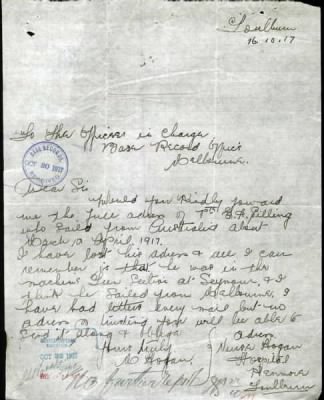 Goulburn
16.10.17
To the Officer in Charge
Base Record Office
Melbourne.
BASE RECORDS
OCT 20 1917
Dear Sir
Would you kindly forward
me the full adress of Pte
who sailed from Australia about
March or April, 1917.
I have lost his adress & all I can
remember is that he was in the
machine Gun Section at Seymour, & I
think he sailed from Melbourne. I
have had letters every mail but no
adress. Trusting you will be able to
send it along & oblige
Yours truly
M Hogan.
adress
Nurse Hogan
Hospital
Goulburn
OCT 20 1917